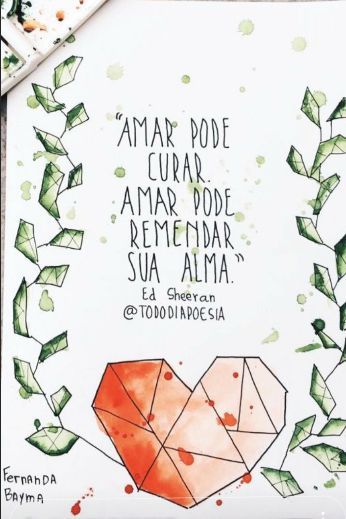 "AMAR PODE
CURAR.
AMAR PODE
REMENDAR
SUA ALMA."
Ed Sheeran
@TODODIAPOESIA
FERNANDA
BAYMA